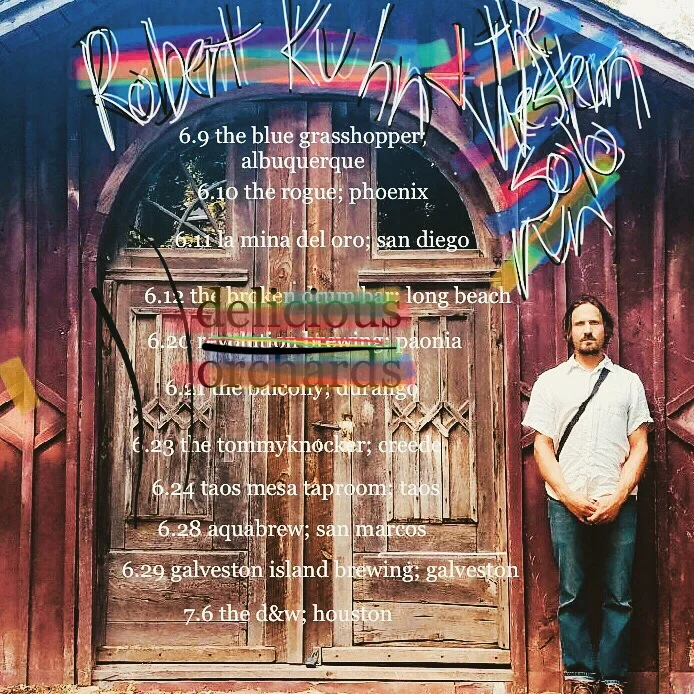 Robert Kuhn + the
Western
solo
run
6.9 the blue grasshopper;
albuquerque
6.10 the rogue; phoenix
6.11 la mina del oro; san diego
6.12 the broken drum bar; long beach
delicious
6.20 revolution brewing; paonia
orchards
6.21 the balcony; durango
6.23 the tommyknocker; creede
6.24 taos mesa taproom; taos
6.28 aquabrew; san marcos
6.29 galveston island brewing; galveston
7.6 the d&w; houston